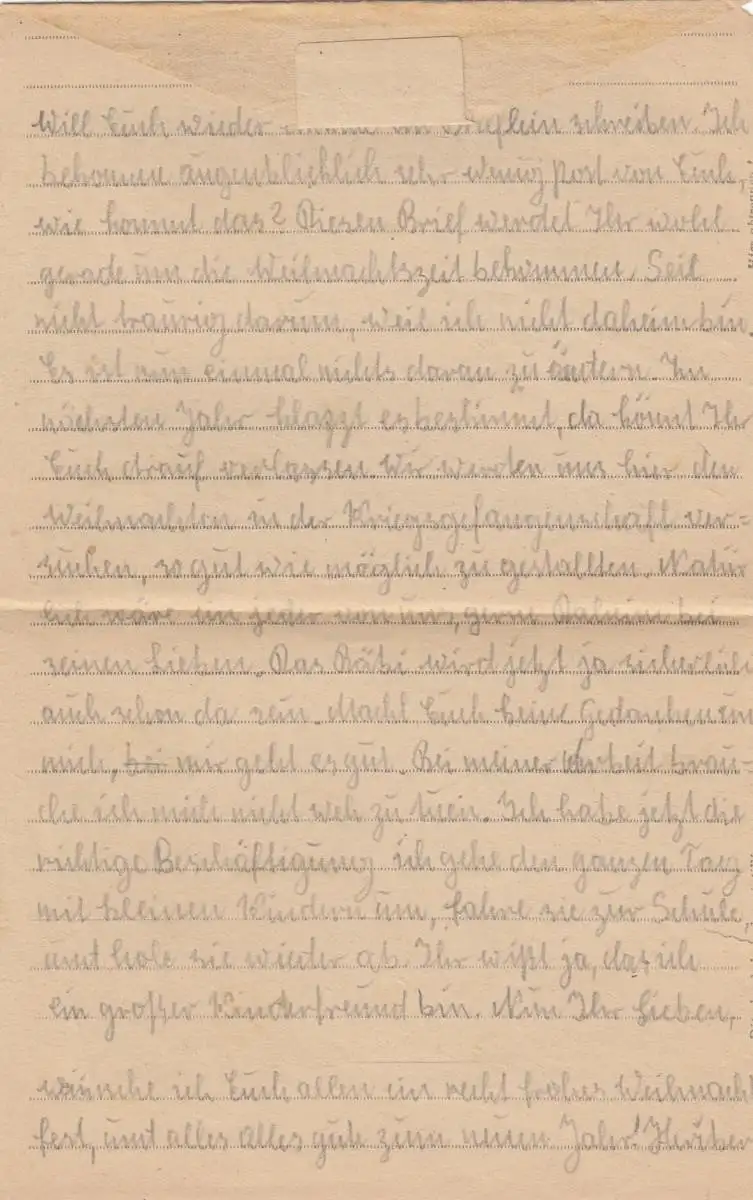 Will Euch wieder Brieflein schreiben. Ich
bekomme augenblicklich sehr wenig Post von Euch,
wie kommt das? Diesen Brief werdet Ihr wohl
gerade um die Weihnachtszeit bekommen. Seit
nicht traurig darum, weil ich nicht daheim bin.
Es ist nun einmal nichts daran zu ändern. Im
nächsten Jahr klappt es bestimmt, da könnt Ihr
Euch drauf verlassen. Wir werden uns hier den
Weihnachten in der Kriegsgefangenschaft ver-
suchen, so gut wie möglich zu gestallten. Natür
lich wäre ein jeder von uns, gerne Daheim bei
seinen Lieben. Das wird jetzt ja sicherlich
auch schon da sein. Macht Euch keine Gedanken um
mich, bei mir geht es gut. Bei meiner Arbeit brau-
che ich mich nicht weh zu tuen. Ich habe jetzt die
richtige Beschäftigung ich gehe den ganzen Tag
mit kleinen Kindern um, fahre sie zur Schule,
umt hole sie wieder ab. Ihr wißt ja, das ich
ein großer Kinderfreund bin. Nun Ihr Lieben,
wünsche ich Euch allen ein recht frohes Weihnacht
fest, umt alles alles gute zum neuen Jahr!